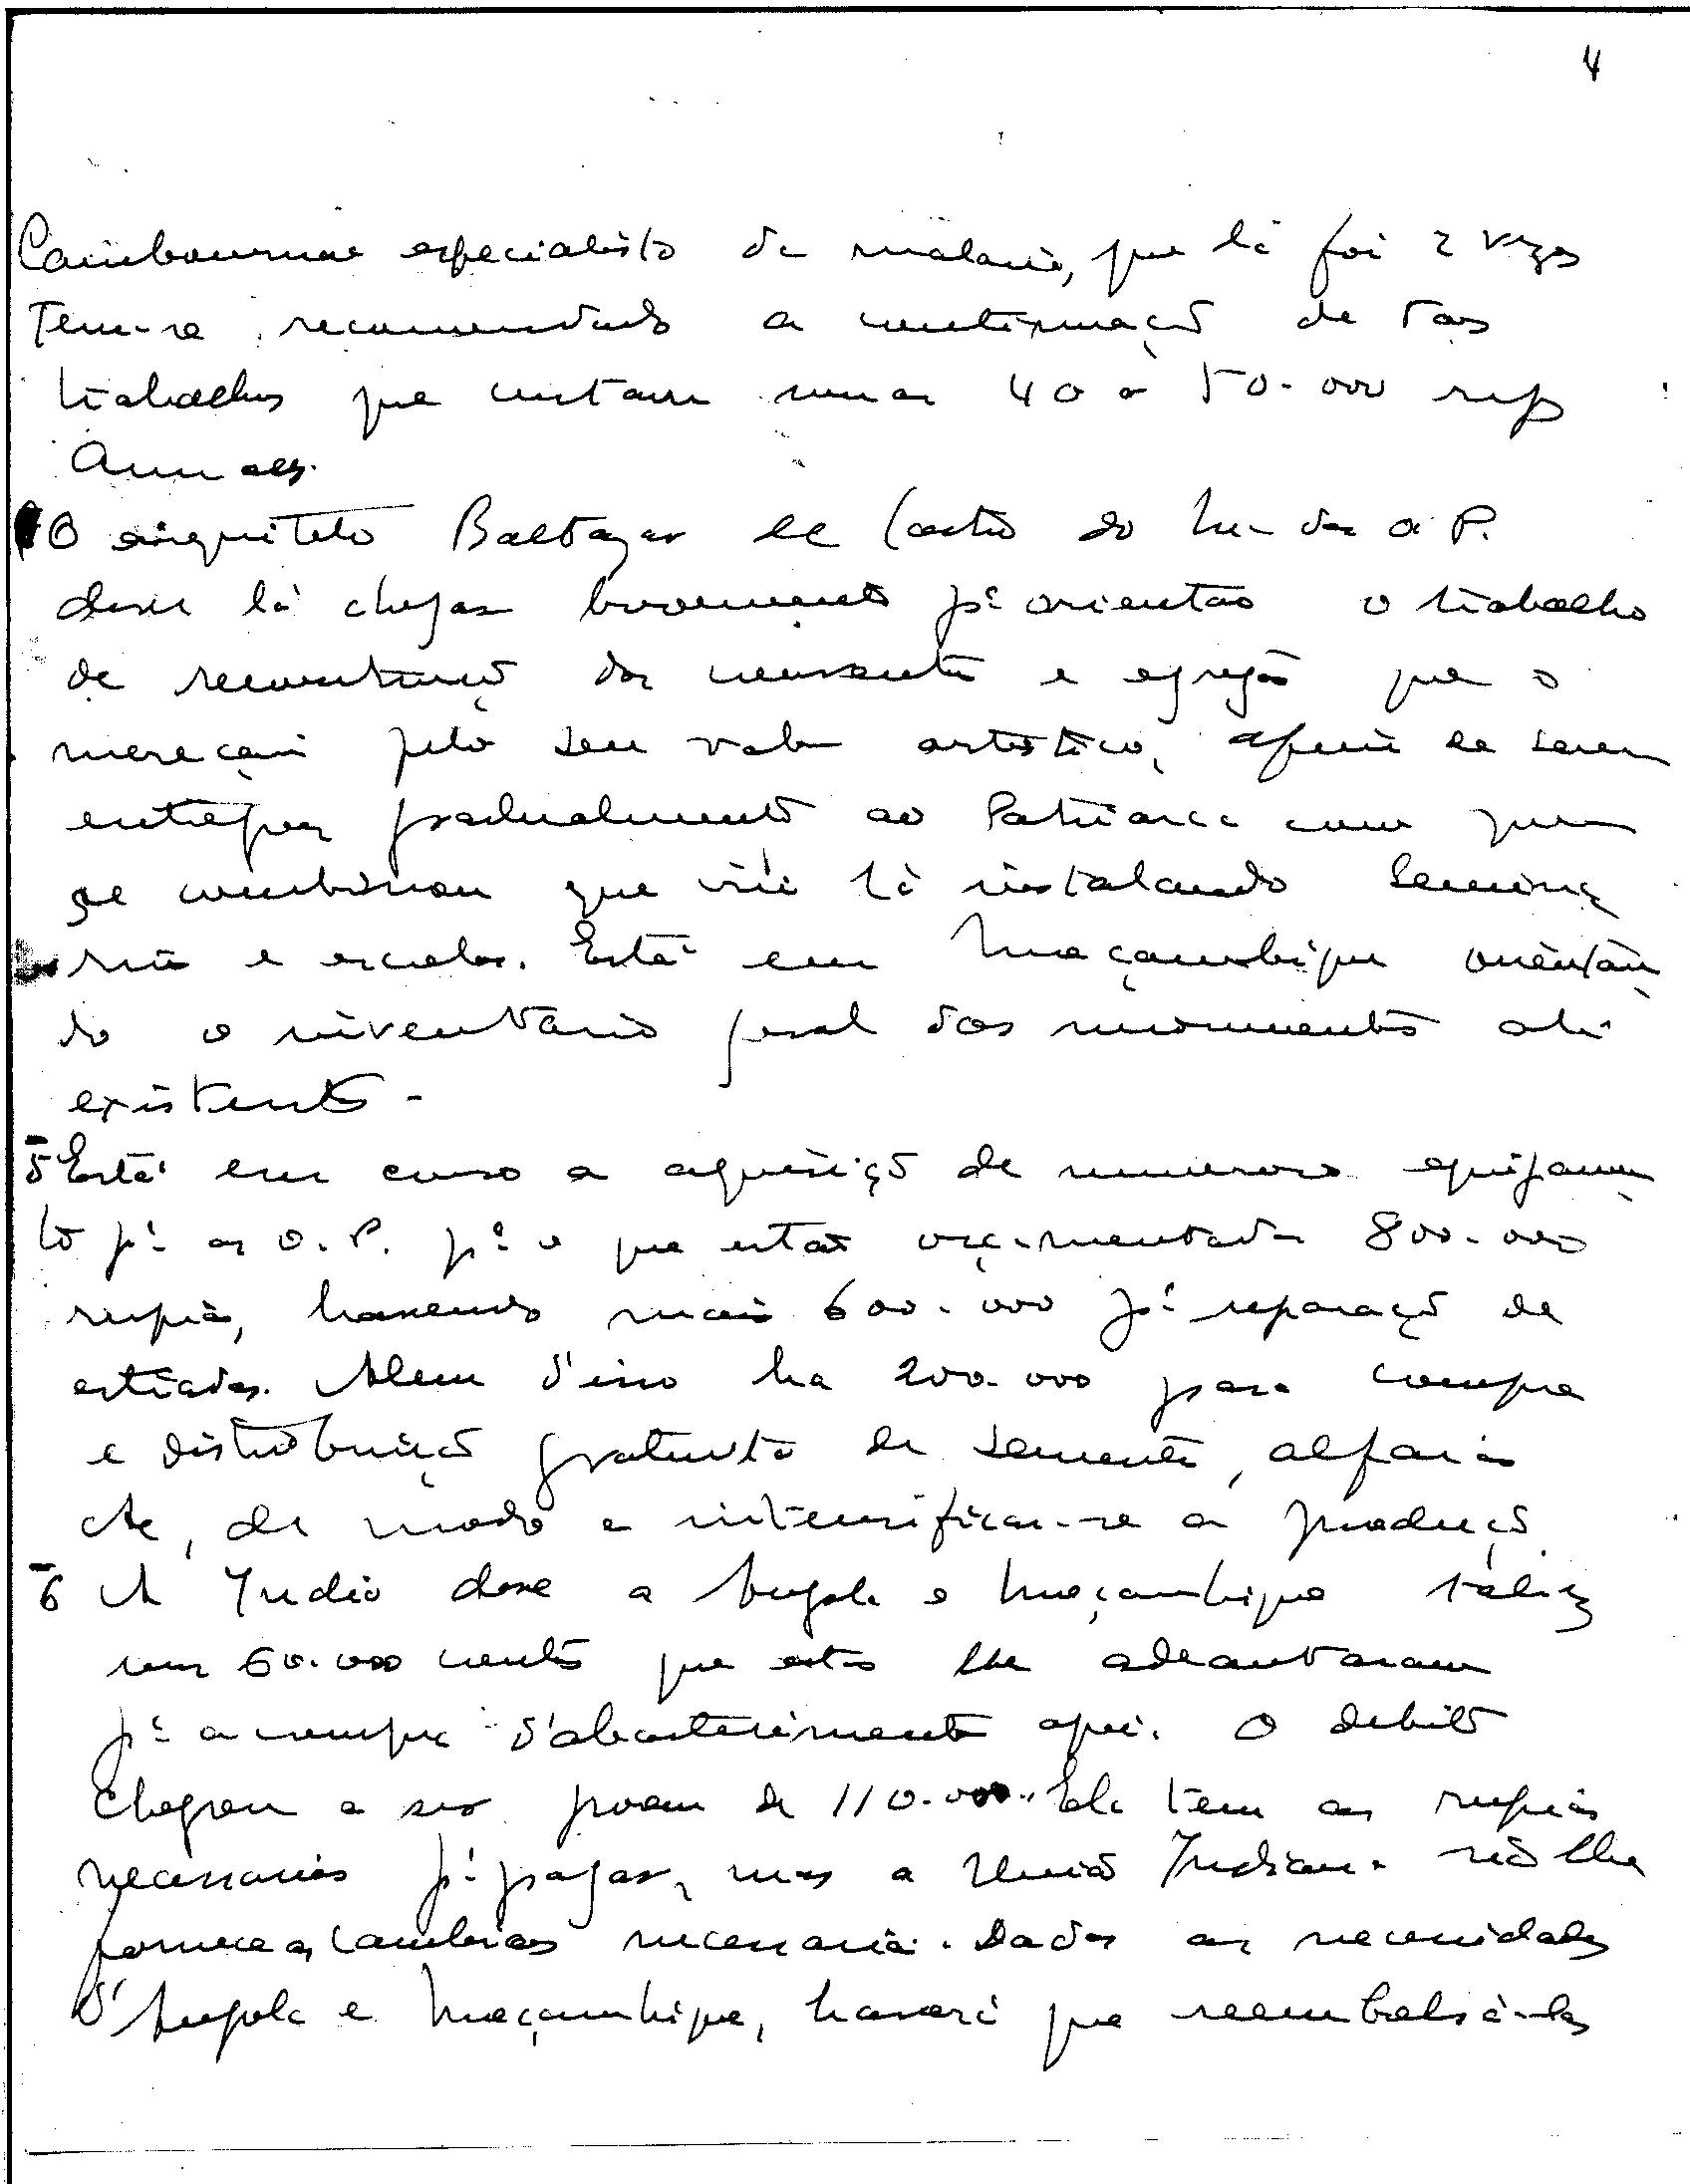 4
Cambournac especialista da malaria, que lá foi 2 vezes
Tem-se recomendado a continuação de tais
trabalhos que custam umas 40 a 50.000 rup
Annaes.
O arquiteto Baltazar de Castro do M. das O. P.
deve lá chegar brevemente pª orientar o trabalho
de reconstrução dos conventos e egrejas que o
mereçam pelo seu valor artistico, afim de serem
entregues gradualmente ao Patriarca com quem
se combinou que irá lá instalando Semina
rio e escolas. Está em Moçambique orientan
do o inventario geral dos monumentos ali
existentes -
5 Está em curso a aquisição de numeroso equipamen
to pª as O. P. pª o que estão orçamentadas 800.000
rupias, havendo mais 600.000 pª reparação de
estradas. Alem d'isso ha 200.000 para compra
e distribuição gratuita de sementes, alfaias
etc, de modo a intensificar-se a produção.
6 A India deve a Angola e Moçambique talvez
uns 60.000 contos que estas lhe adeantaram
pª a compra d'abastecimentos aqui. O debito
Chegou a ser de 110.000. Ela tem as rupias
necessarias pª pagar, mas a União Indiana não lhe
fornece as cambiaes necessarias. Dadas as necessidades
d'Angola e Moçambique, haverá que reembolsá-las